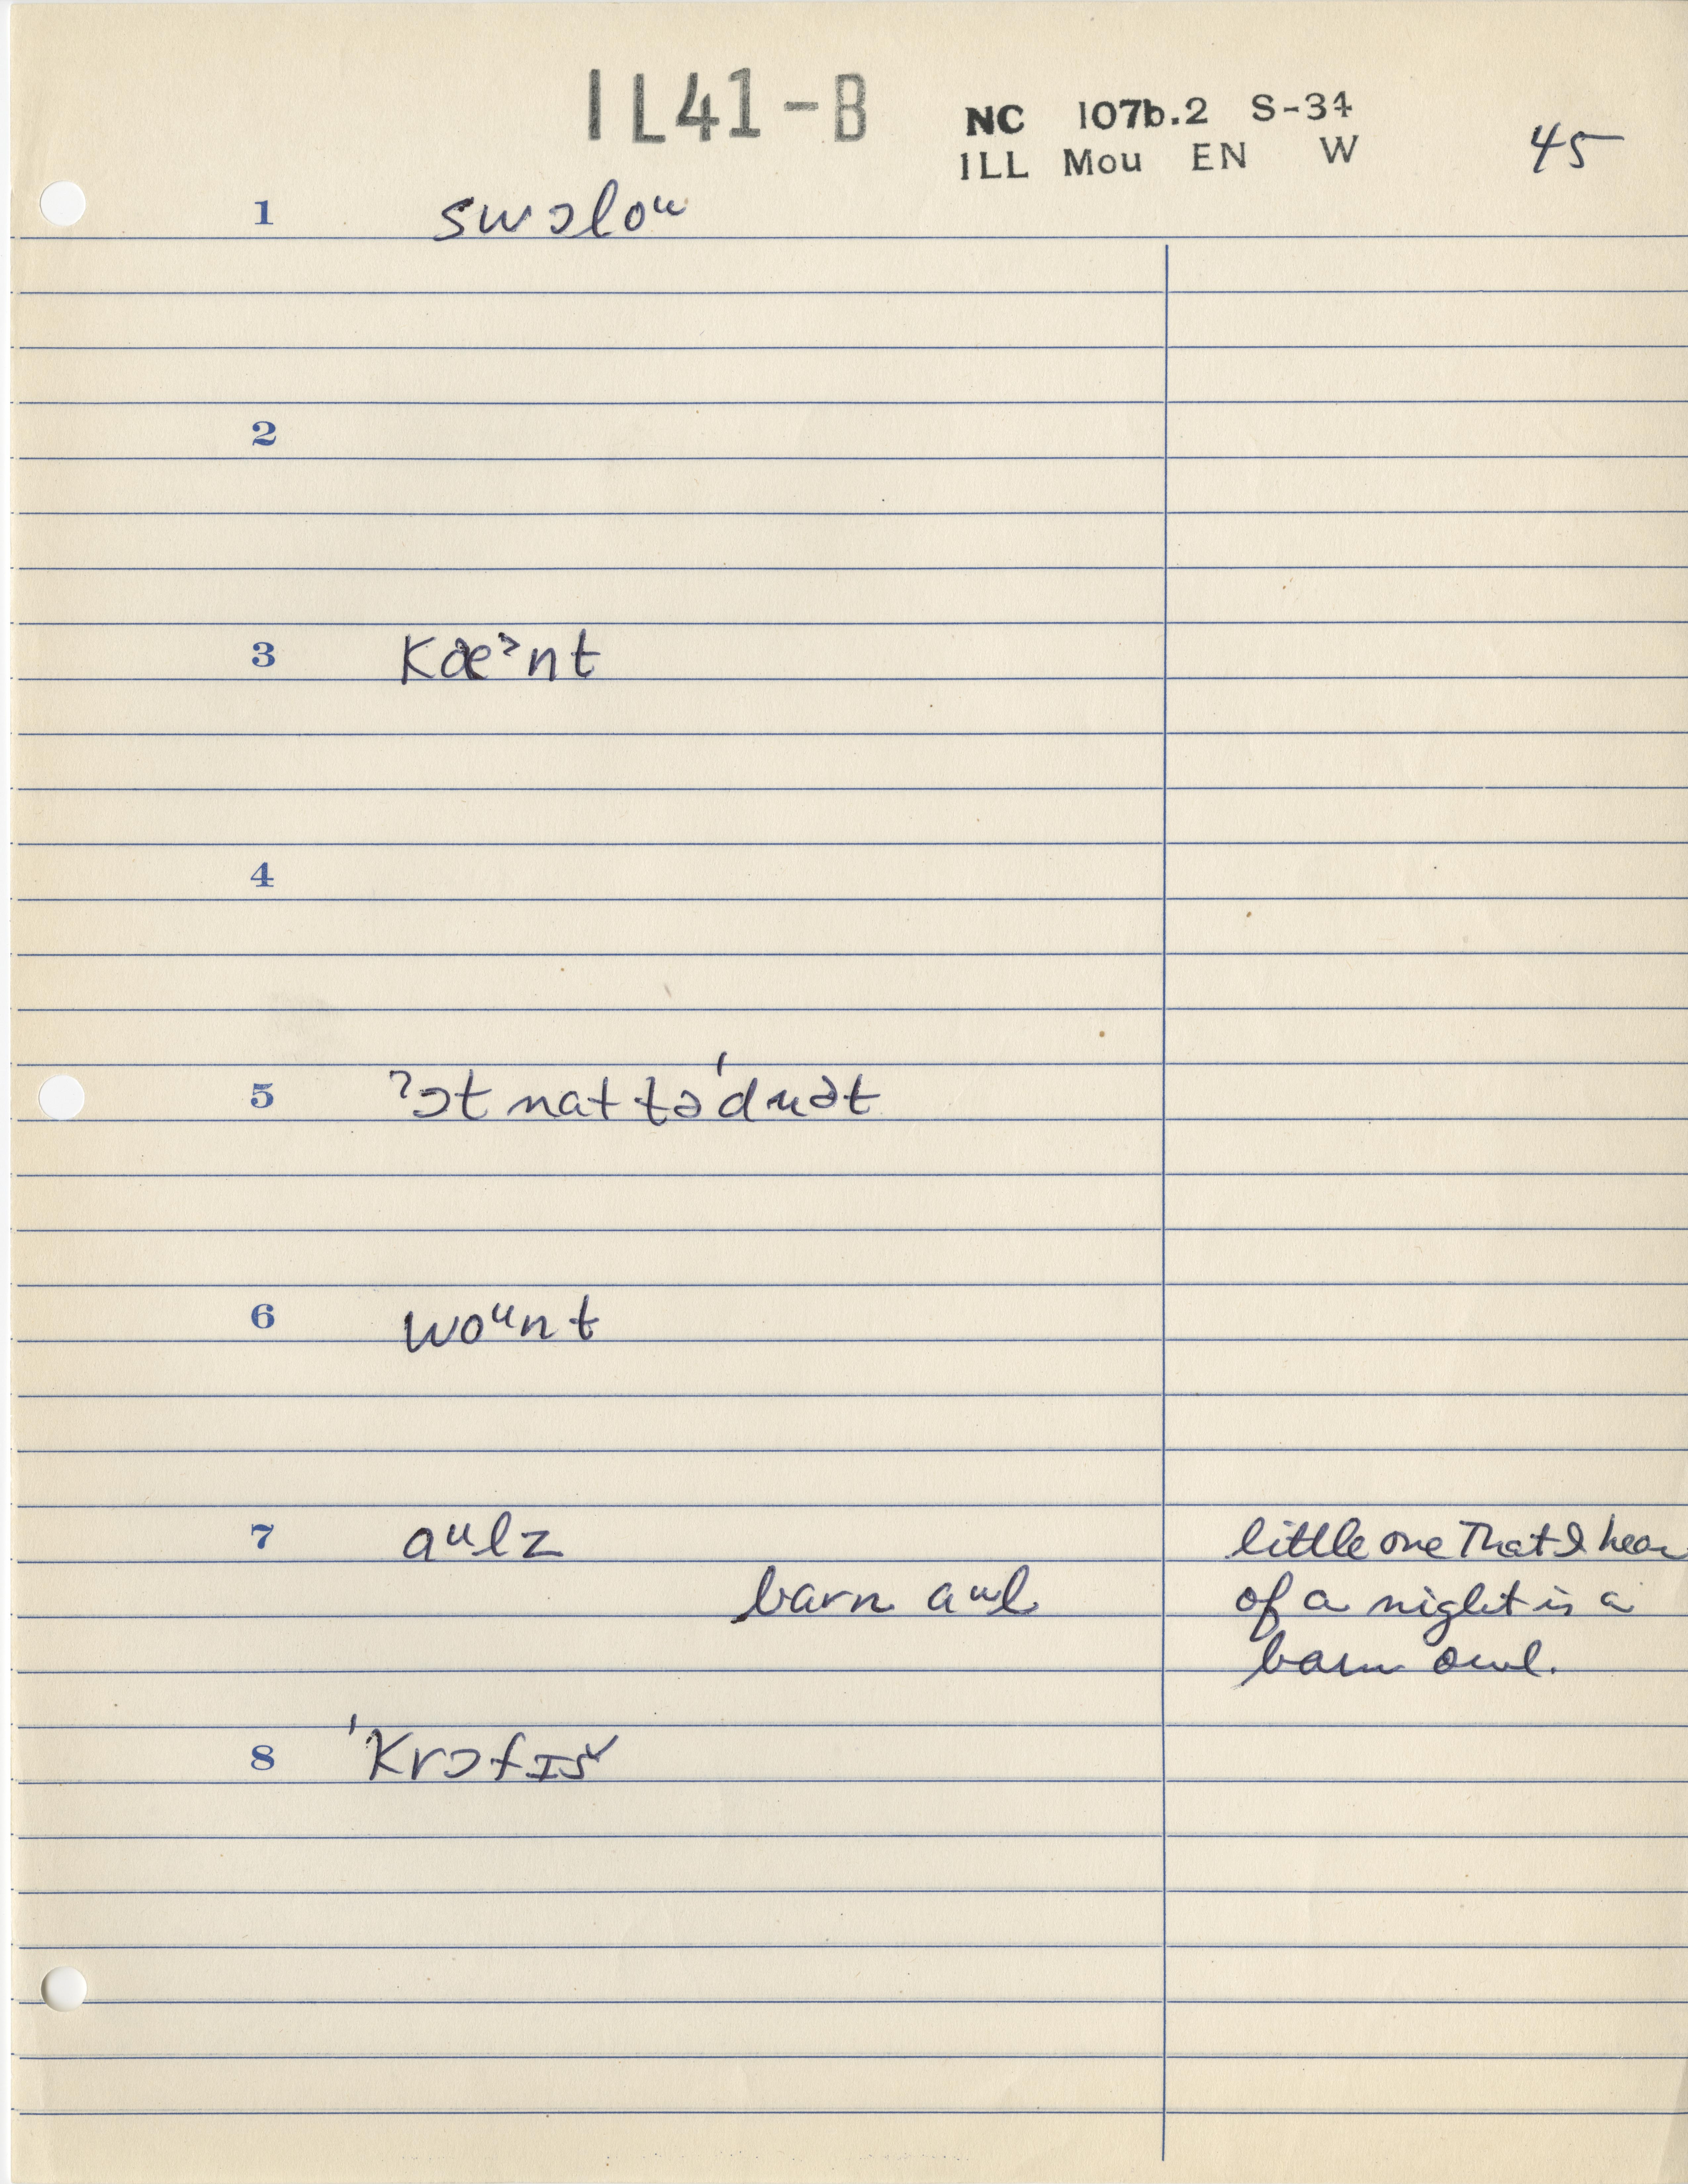 IL41-B
NC 107b.2 S-34
ILL Mou EN W
45
1 swɔloᵘ
2
3 Kæᵊnt
4
5 ˀɔt nat tə'duət
6 woᵘnt
7 aᵘlz little one That I hear
barn aᵘl of a night is a
barn owl.
8 'Krɔfɪš